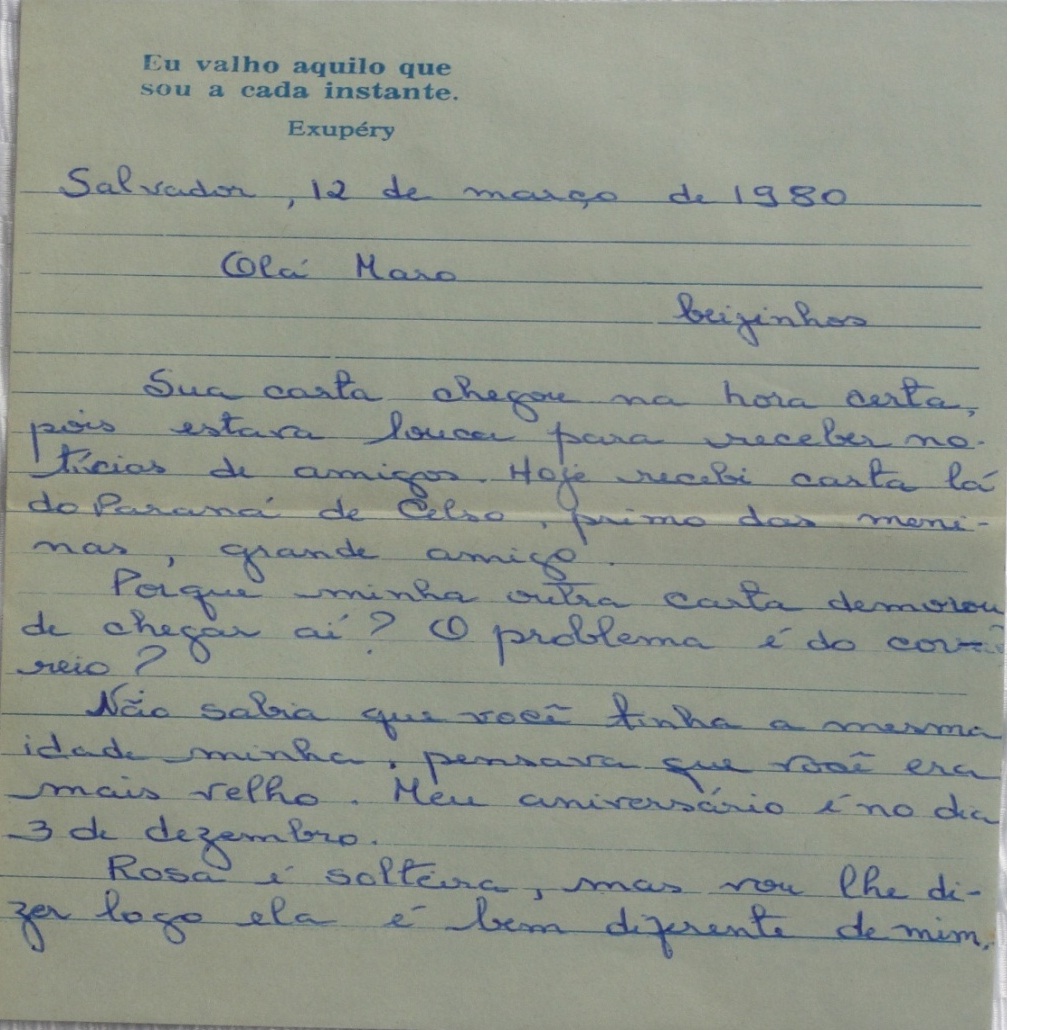 Eu valho aquilo que
sou a cada instante.
Exupéry
Salvador, 12 de março de 1980
Olá Maro
beizinhos
Sua carta chegou na hora certa,
pois estava louca para receber no-
tícias de amigos. Hoje recebi carta lá
do Paraná de Celso, primo das meni-
nas, grande amigo.
Porque minha outra carta demorou
de chegar aí? O problema é do cor-
reio?
Não sabia que você tinha a mesma
idade minha, pensava que você era
mais velho. Meu aniversário é no dia
3 de dezembro.
Rosa é solteira, mas vou lhe di-
zer logo ela é bem diferente de mim,